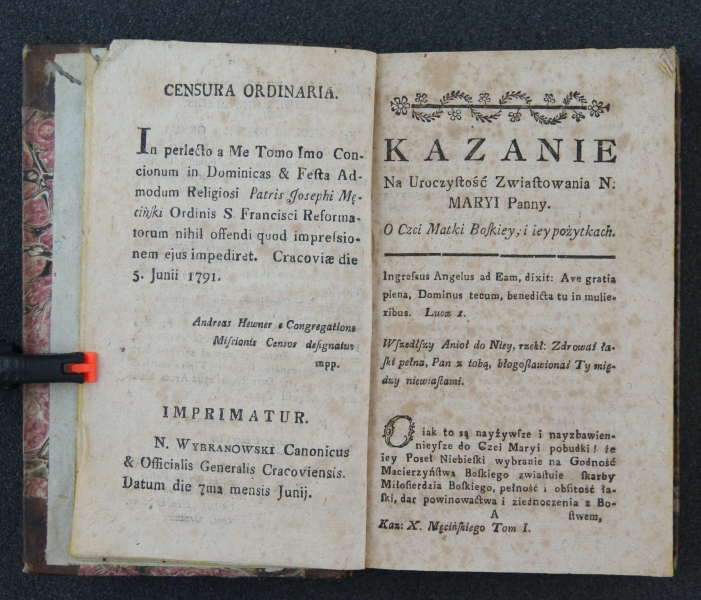 CENSURA ORDINARIA.
In perlecto a Me Tomo Imo Con-
cionum in Dominicas & Feſta Ad-
modum Religiosi Patris Joſephi Mę-
cińſki Ordinis S. Francisci Reforma-
torum nihil offendi quod impreſsio-
nem ejus impediret. Cracoviæ die
5. Junii 1791.
Andreas Hewner e Congregatione
Miſcionis Cenſor deſignatus
mpp.
IMPRIMATUR.
N. WYBRANOWSKI Canonicus
& Officialis Generalis Cracoviensis.
Datum die 7ma mensis Junij.
KAZANIE
Na Uroczyſtość Zwiaſtowania N.
MARYI Panny.
O Czci Matki Boſkiey, i iey pożytkach.
Ingreſsus Angelus ad Eam, dixit: Ave gratia
plena, Dominus tecum, benedicta tu in mulie-
ribus. Lucæ 1.
Wſzedłſzy Anioł do Niey, rzekł: Zdrowaś ła-
ſki pełna, Pan z tobą, błogoſławionaś Ty mię-
dzy niewiaſtami.
O iak to są nayżywſze i nayzbawien-
nieyſze do Czci Maryi pobudki! że
iey Poseł Niebieſki wybranie na Godność
Macierzyńſtwa Boſkiego zwiaſtuie ſkarby
Miłoſierdzia Boſkiego, pełność i obfitość ła-
ſki, dar powinowactwa i ziednoczenia z Bo-
A ſtwem,
Kaz: X. Męcińſkiego Tom I.